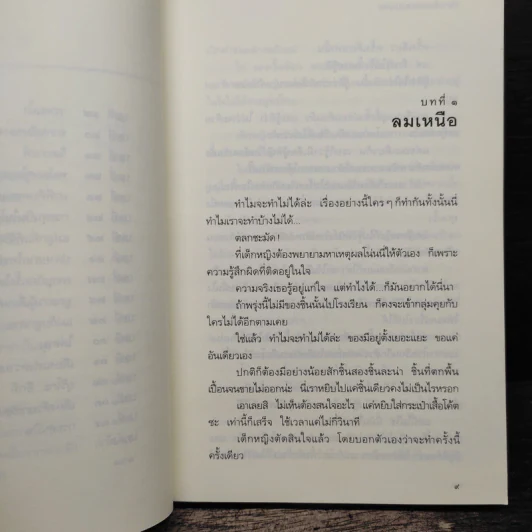 บทที่ ๑
ลมเหนือ
ทำไมจะทำไม่ได้ล่ะ เรื่องอย่างนี้ใคร ๆ ก็ทำกันทั้งนั้นนี่
ทำไมเราจะทำบ้างไม่ได้...
ตลกชะมัด !
ที่เด็กหญิงต้องพยายามหาเหตุผลโน่นนี่ให้ตัวเอง ก็เพราะ
ความรู้สึกผิดที่ติดอยู่ในใจ
ความจริงเธอรู้อยู่แก่ใจ แต่ทำไงได้ ก็มันอยากได้นี่นา
ถ้าพรุ่งนี้ไม่มีของชิ้นนั้นไปโรงเรียน ก็คงจะเข้ากลุ่มคุยกับ
ใครไม่ได้อีกตามเคย
ใช่แล้ว ทำไมจะทำไม่ได้ล่ะ ของมีอยู่ตั้งเยอะแยะ ขอแค่
อันเดียวเอง
ปกติก็ต้องมีอย่างน้อยสักชิ้นสองชิ้นละน่า ชิ้นที่ตกพื้น
เปื้อนจนขายไม่ออกน่ะ นี่เราหยิบไปแค่ชิ้นเดียวคงไม่เป็นไรหรอก
เอาเลยสิ ไม่เห็นต้องสนใจอะไร แค่หยิบใส่กระเป๋าเสื้อโค้ต
ซะ เท่านี้ก็เสร็จ ใช้เวลาแค่ไม่กี่วินาที
เด็กหญิงตัดสินใจแล้ว โดยบอกตัวเองว่าจะทำครั้งนี้
ครั้งเดียว
๙